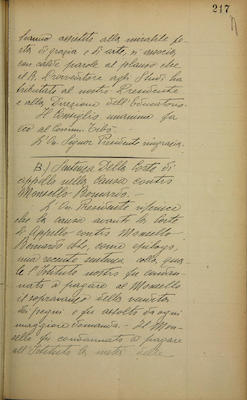 217
hanno assistito alla mirabile fe
sta di grazia e di arte, si associa
con calde parole al plauso che
il R. Provveditore agli Studi ha
tributato al nostro Presidente
e alla Direzione dell'Educatorio.
Il Consiglio unanime fa
eco al Comm.
L'On. Signor Presidente ringrazia.
B.) Sentenza della Corte di
appello nella causa contro
Monsello Bernardo.
L'On. Presidente riferisce
che la causa avanti la Corte
di Appello contro Monsello
Bernardo ebbe, come epilogo,
una recente sentenza colla qua
le l'Istituto nostro fu condan
nato a pagare al Monsello
il sopravanzo della vendita
dei pegni e fu assolto da ogni
maggiore domanda. - Il Mon
sello fu condannato a pagare
all'Istituto la metà delle